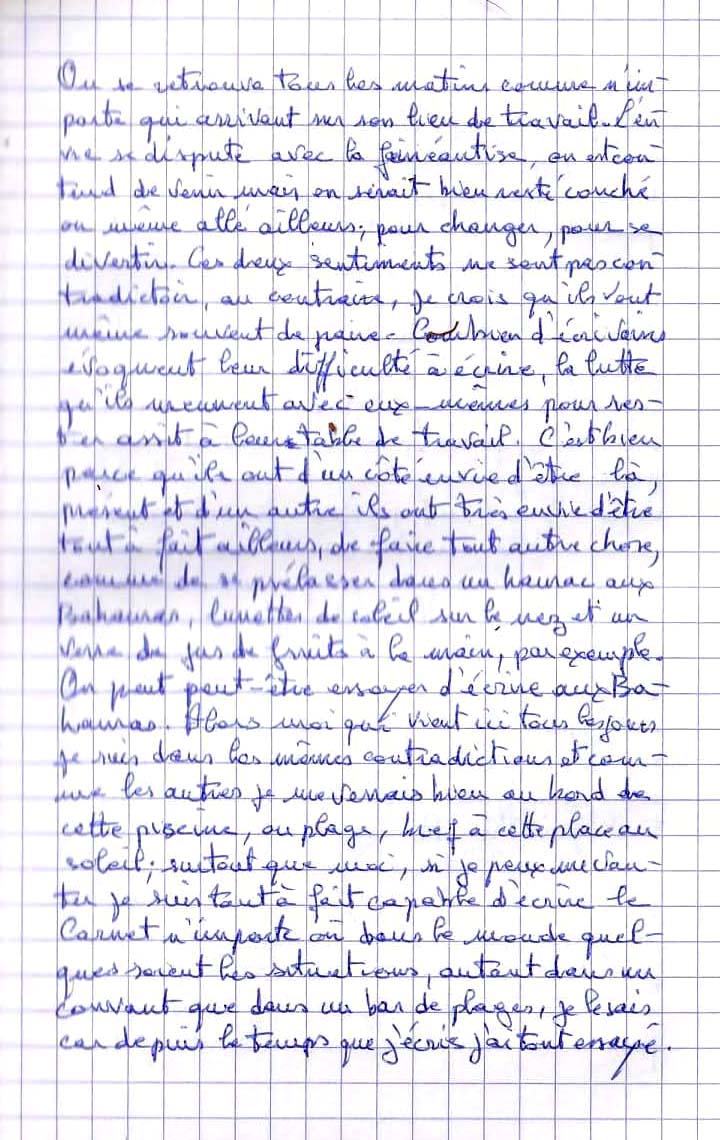 On se retrouve tous les matins comme n'im-
porte qui arrivant sur son lieu de travail. L'en
vie se dispute avec la fainéantise, on est con
tend de venir mais on serait bien resté couché
ou même allé ailleurs; pour changer, pour se
divertir. Ces deux sentiments ne sont pas con
tradictoir, au contraire, je crois qu'ils vont
même souvent de paire. Combien d'écrivains
évoquent leur difficulté à écrire, la lutte
qu'ils mennent avec eux-mêmes pour res-
ter assit à leur table de travail. C'est bien
parce qu'ils ont d'un côté envie d'être là,
présent et d'un autre ils ont très envie d'être
tout à fait ailleurs, de faire tout autre chose,
comme de se prélasser dans un hamac aux
Bahamas, lunettes de soleil sur le nez et un
verre de jus de fruits à la main, par exemple.
On peut peut-être essayer d'écrire aux Ba-
hamas. Alors moi qui vient ici tous les jours
je suis dans les mêmes contradictions et com-
me les autres je me verrais bien au bord de
cette piscine, ou plage, bref à cette place au
soleil; surtout que moi, si je peux me van-
ter je suis tout à fait capable d'écrire le
Carnet n'importe où dans le monde quel-
ques soient les situations, autant dans un
couvant que dans un bar de plages, je le sais
car depuis le temps que j'écris j'ai tout essayé.